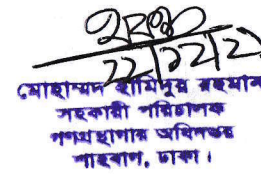 ২২|১২|২১
মোহাম্মদ হামিদুর রহমান
সহকারী পরিচালক
গণগ্রন্থাগার অধিদপ্তর
শাহবাগ, ঢাকা।